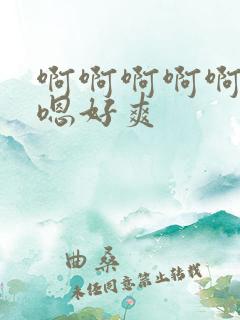 啊啊啊啊啊
嗯好爽
曲桑
未经同意禁止转载